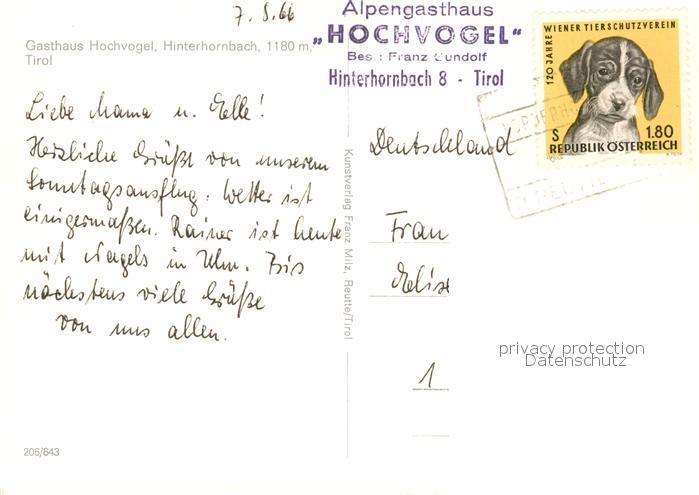 7. 8. 66
Alpengasthaus
„HOCHVOGEL“
Bes.: Franz Gundolf
Hinterhornbach 8 - Tirol
120 JAHRE WIENER TIERSCHUTZVEREIN
S 1.80
REPUBLIK ÖSTERREICH
Gasthaus Hochvogel, Hinterhornbach, 1180 m,
Tirol
Liebe Mama u. Elle!
Herzliche Grüße von unserem
Sonntagsausflug. Wetter ist
einigermaßen. Rainer ist heute
mit Nagels in Ulm. Bis
nächstens viele Grüße
von uns allen.
Kunstverlag Franz Milz, Reutte/Tirol
Deutschland
Frau
Elise
1
privacy protection
Datenschutz
206/643